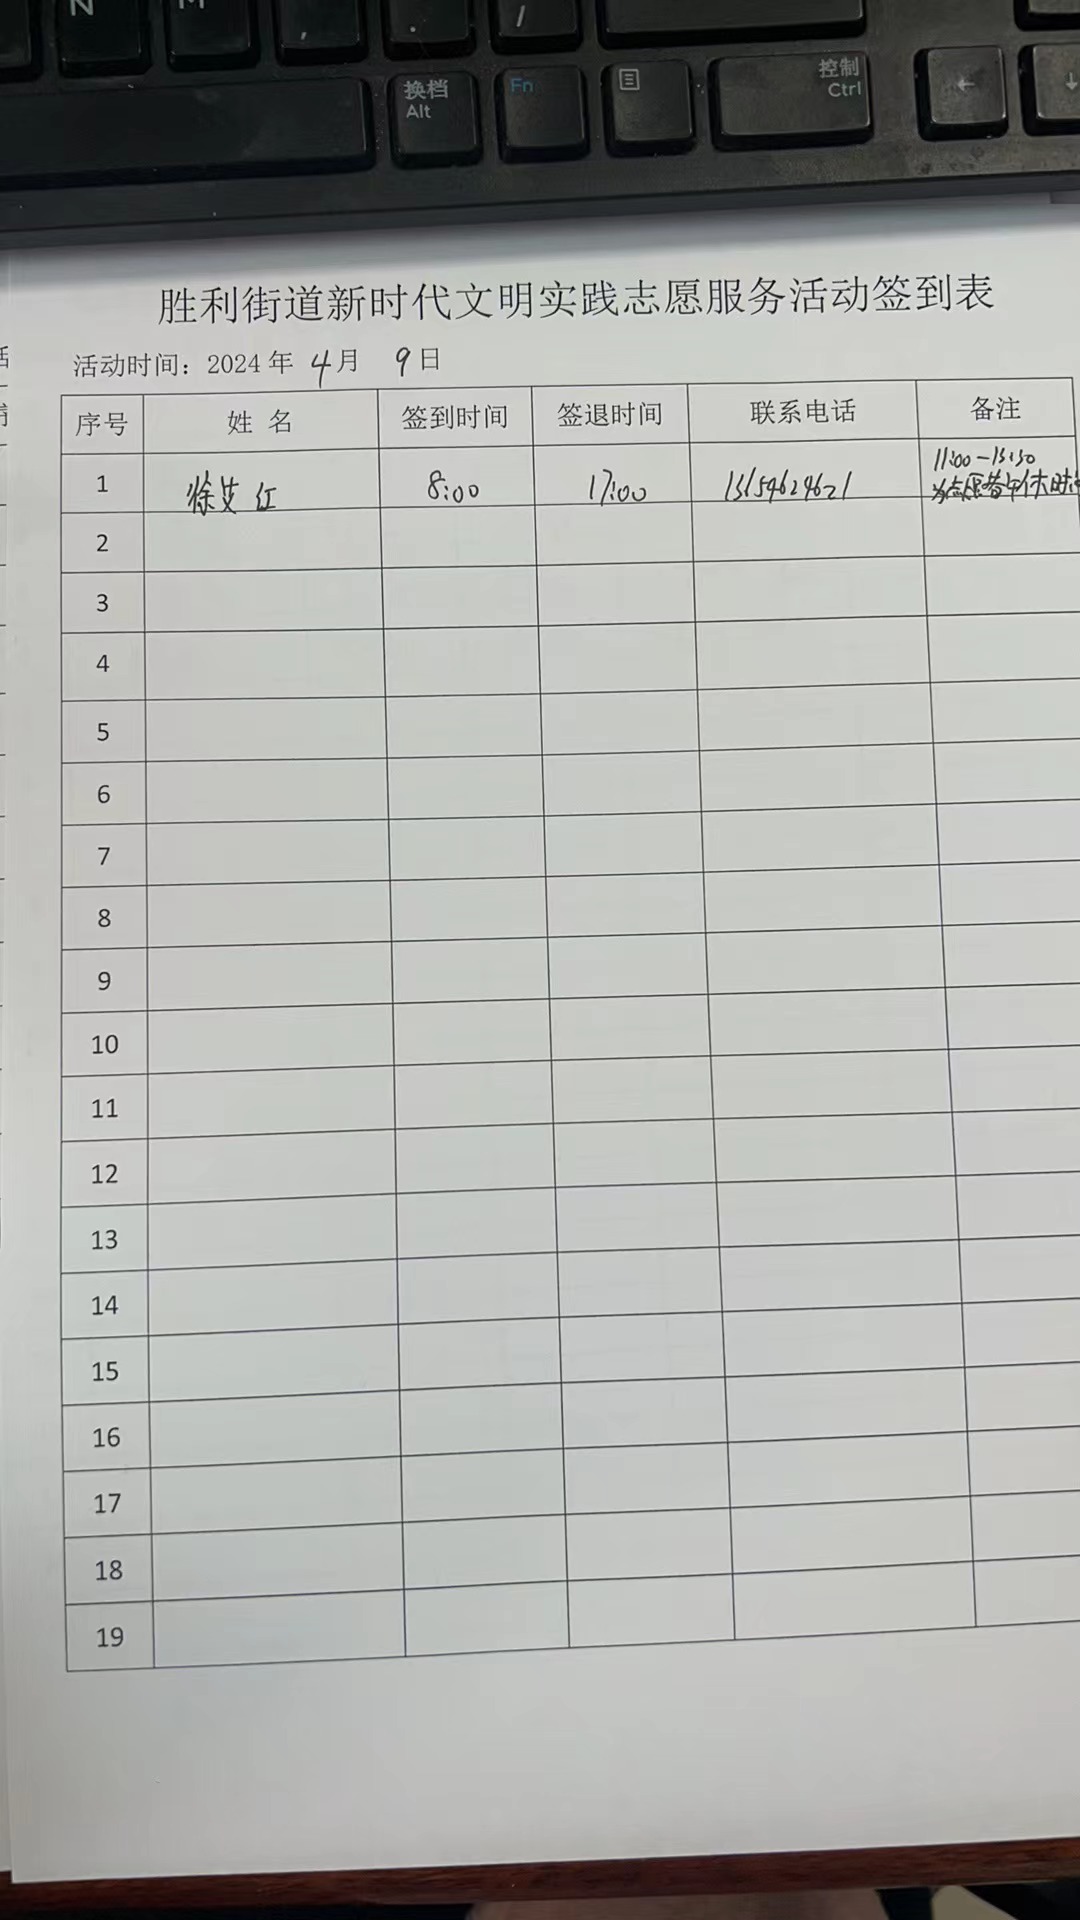 N M , . /
换档 Alt Fn 控制 Ctrl ← ↓
胜利街道新时代文明实践志愿服务活动签到表
活动时间：2024年 4月 9日
序号 姓 名 签到时间 签退时间 联系电话 备注
1 徐艾红 8:00 17:00 15154624621 11:00-13:30
为志愿者午休时
2
3
4
5
6
7
8
9
10
11
12
13
14
15
16
17
18
19